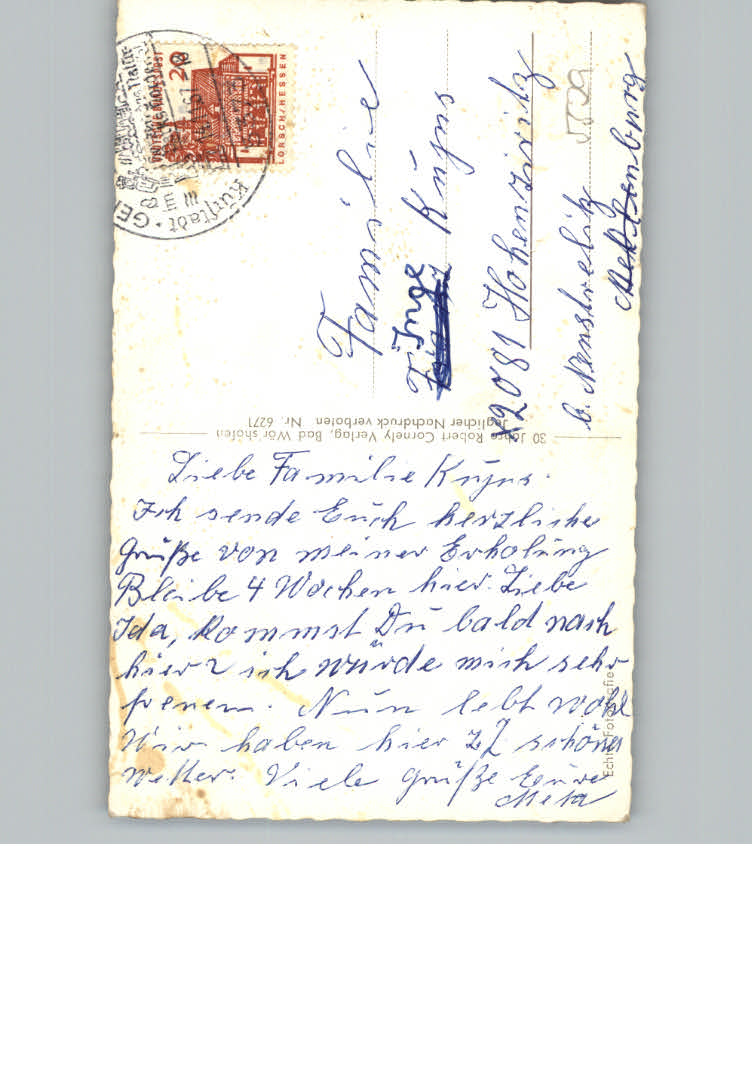 Liebe Familie Kujus.
Ich sende Euch herzliche
Grüße von meiner Erholung
Bleibe 4 Wochen hier. Liebe
Ida, kommst Du bald nach
hier? ich würde mich sehr
freuen. Nun lebt wohl
Wir haben hier z Z schönes
wetter. Viele Grüße Eure
Meta
Familie
Inge Kujus
X2081 Hohenzieritz
b. Neustrelitz
Mecklenburg
30 Jahre Robert Cornely Verlag, Bad Wörishofen
Jeglicher Nachdruck verboten Nr. 6271
Echte Fotografie
20
LORSCH/HESSEN
Kurstadt